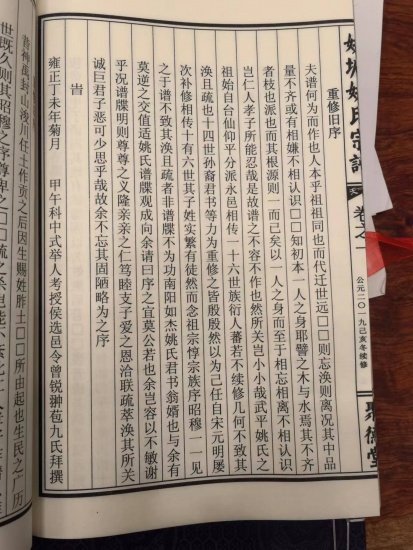 姚氏宗譜
卷之一
公元二〇一九己亥冬续修
聚德堂
重修旧序
夫谱何为而作也人本乎祖祖同也而代迁世远□□则忘涣则离况其中品
量不齐或有相嫌不相认识□□知初本一人之身耶譬之木与水焉其不齐
者枝也派也而其根源则一而已矣以一人之身而至于相忘相离不相认识
岂仁人孝子所能忍哉是故谱之不容不作也然所关岂小小哉武平姚氏之
祖始自台仙仰平分派永邑相传一十六世族衍人蕃若不续修几何不致其
涣且疏也十四世孙裔君书等力为重修之皆殷殷然以为己任自宋元明屡
次补修相传十有六世其子姓实繁有徒然而念祖宗惇宗族序昭穆一一见
之于谱不致其涣且疏者非谱牒不为功南阳如杰姚氏君书翁婿也与余有
莫逆之交值适姚氏谱牒观成向余请曰序之宜莫公若也余岂容以不敏谢
乎况谱牒明则尊尊之义隆亲亲之仁笃睦支子爱之恩洽联疏萃涣其所关
诚巨君子恶可少思乎哉故余不忘其固陋略为之序
旹
雍正丁未年菊月　甲午科中式举人考授候选邑令曾锐翀苞九氏拜撰
昔神禹封山浚川任土作贡之后因生赐姓胙土□□所由起也生氏之广历
世既久则其昭穆之序尊卑之□□疏之